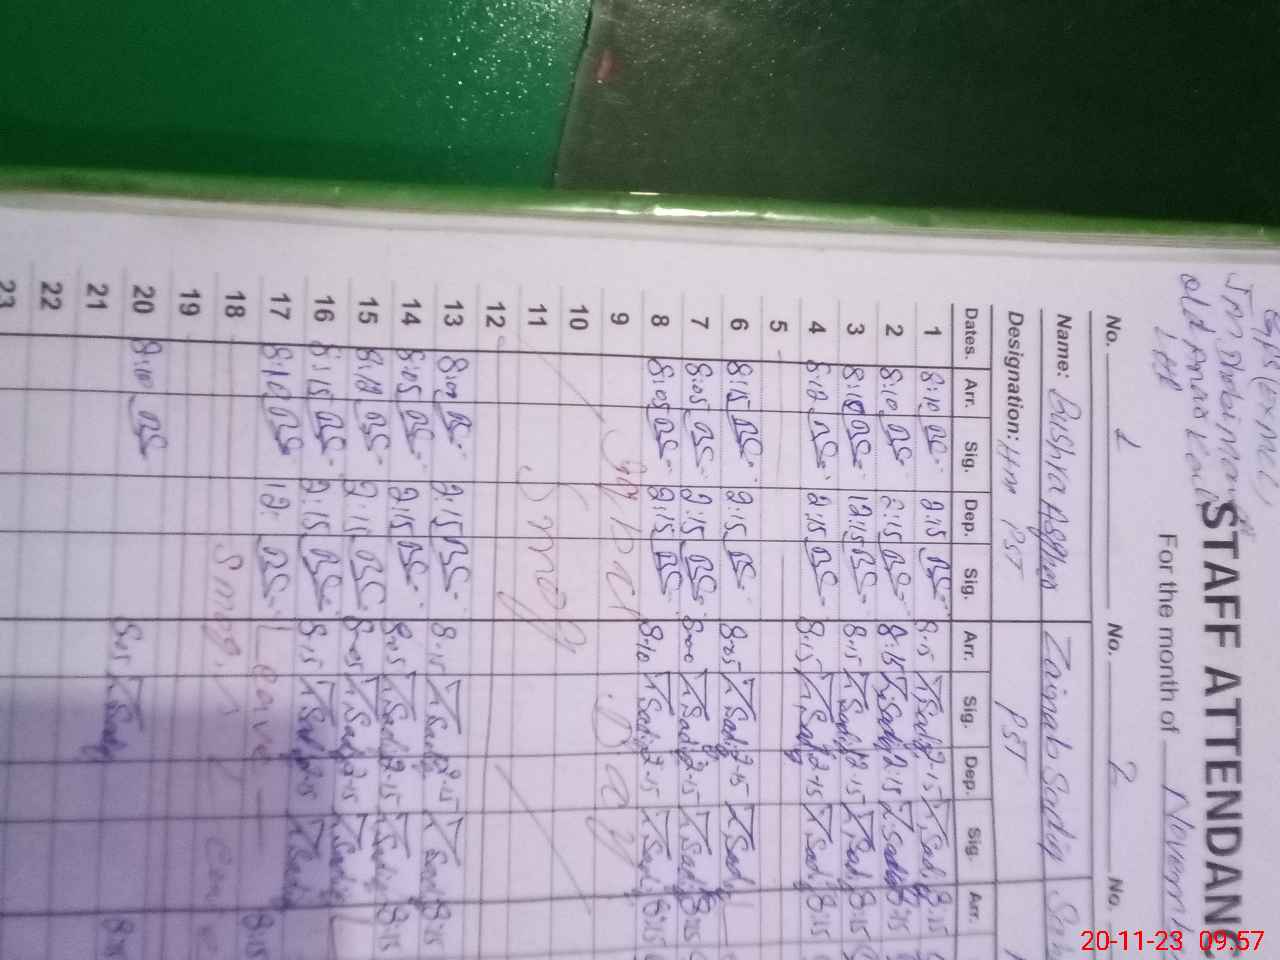 STAFF ATTENDANC
For the month of
No. 1 No. 2 No.
Name: Bushra Asghar Zainab Sadiq
Designation: HM PST PST
Dates. Arr. Sig. Dep. Sig. Arr. Sig. Dep. Sig. Arr.
1 8:10 BS 2:15 BS 8:15 Z Sadiq 2:15 Z Sadiq 8:15
2 8:10 BS 2:15 BS 8:15 Z Sadiq 2:15 Z Sadiq 8:15
3 8:10 BS 12:15 BS 8:15 Z Sadiq 2:15 Z Sadiq 8:15
4 8:10 BS 2:15 BS 8:15 Z Sadiq 2:15 Z Sadiq 8:15
5
6 8:15 BS 2:15 BS 8:05 Z Sadiq 2:15 Z Sadiq
7 8:05 BS 2:15 BS 8:00 Z Sadiq 2:15 Z Sadiq 8:15
8 8:05 BS 2:15 BS 8:10 Z Sadiq 2:15 Z Sadiq 8:15
9 Iqbal Day
10
11 Smog
12
13 8:10 BS 2:15 BS 8:15 Z Sadiq 2:15 Z Sadiq 8:15
14 8:05 BS 2:15 BS 8:05 Z Sadiq 2:15 Z Sadiq 8:15
15 8:10 BS 2:15 BS 8:05 Z Sadiq 2:15 Z Sadiq
16 8:15 BS 2:15 BS 8:15 Z Sadiq 2:15 Z Sadiq
17 8:10 BS 12: BS Leave 8:15
18 Smog
19
20 8:10 BS 8:05 Z Sadiq
21
22
23
20-11-23 09.57